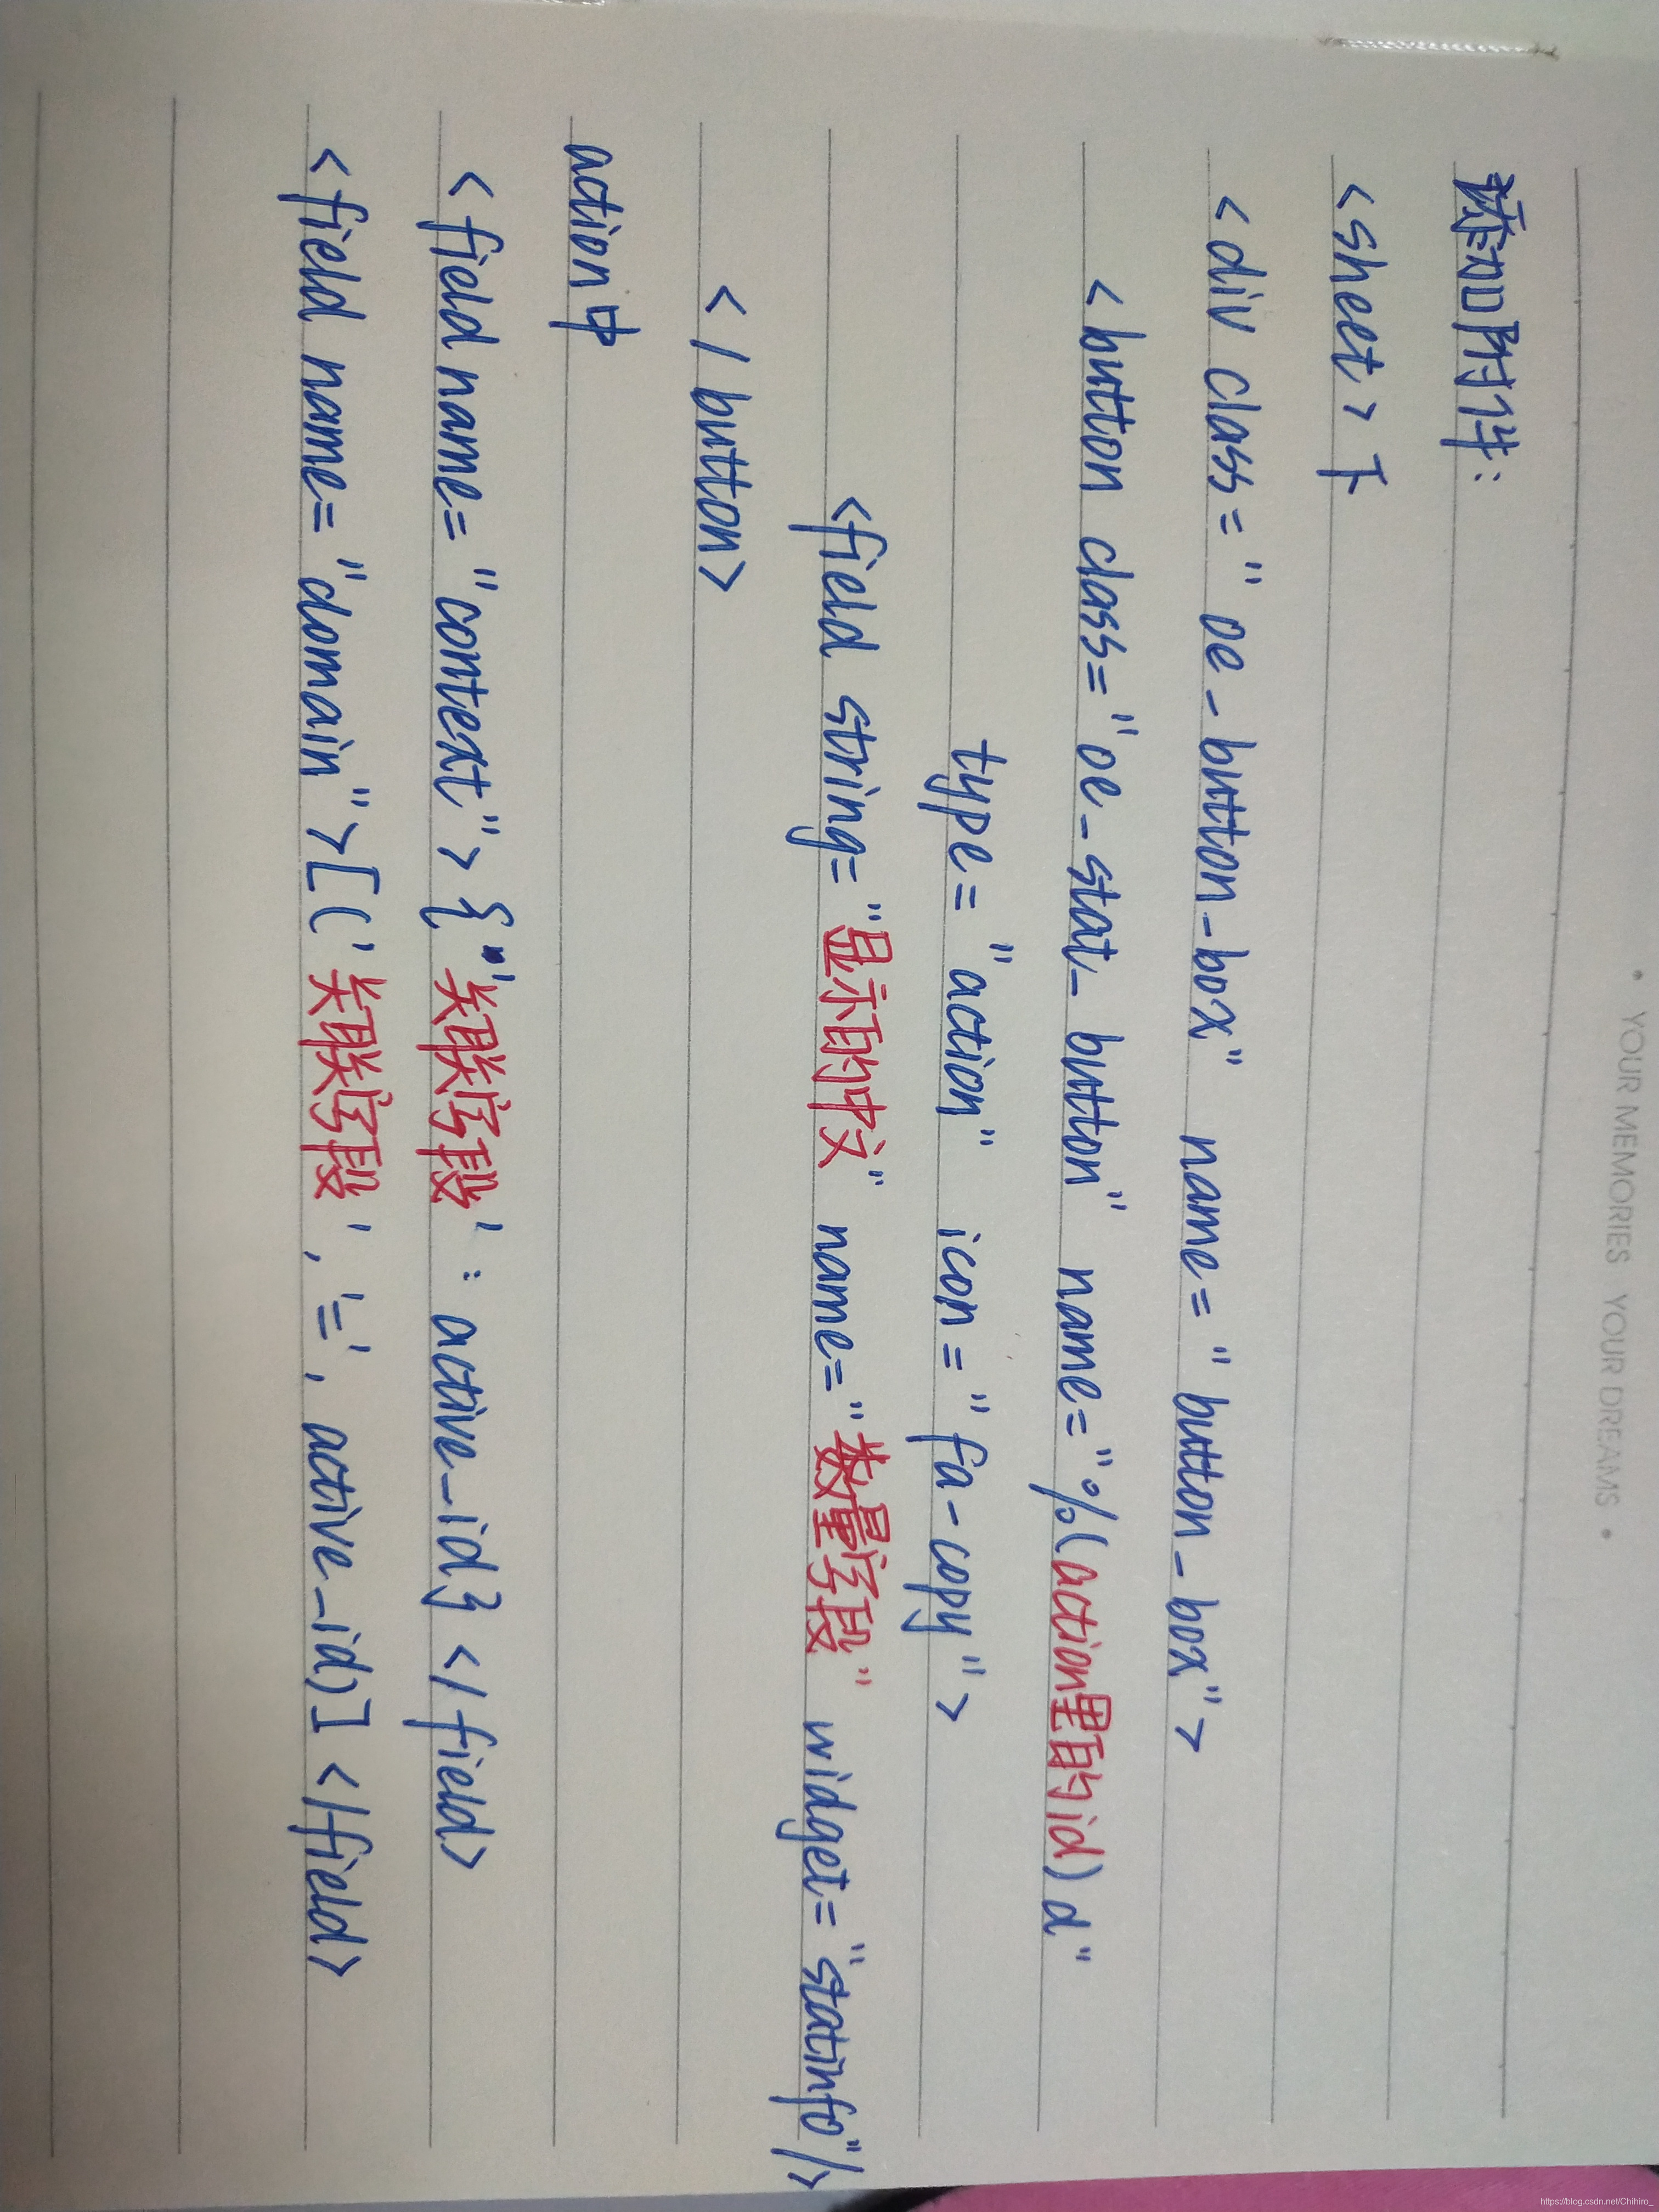 • YOUR MEMORIES YOUR DREAMS •
添加附件:
<sheet>下
<div class="oe_button_box" name="button_box">
<button class="oe_stat_button" name="%(action里的id)d"
type="action" icon="fa-copy">
<field string="显示的中文" name="数量字段" widget="statinfo"/>
</button>
action中
<field name="context">{'关联字段':active_id}</field>
<field name="domain">[('关联字段','=',active_id)]</field>
https://blog.csdn.net/Chihiro_